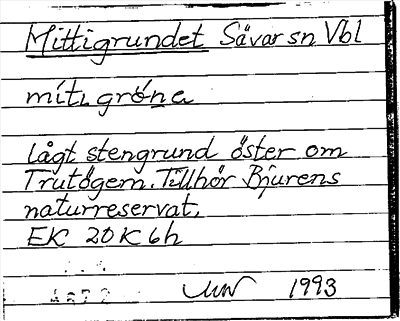 Mittigrundet Sävar sn Vbl
lågt stengrund öster om
Trutögern. Tillhör Bjurens
naturreservat.
EK 20K6h
1993